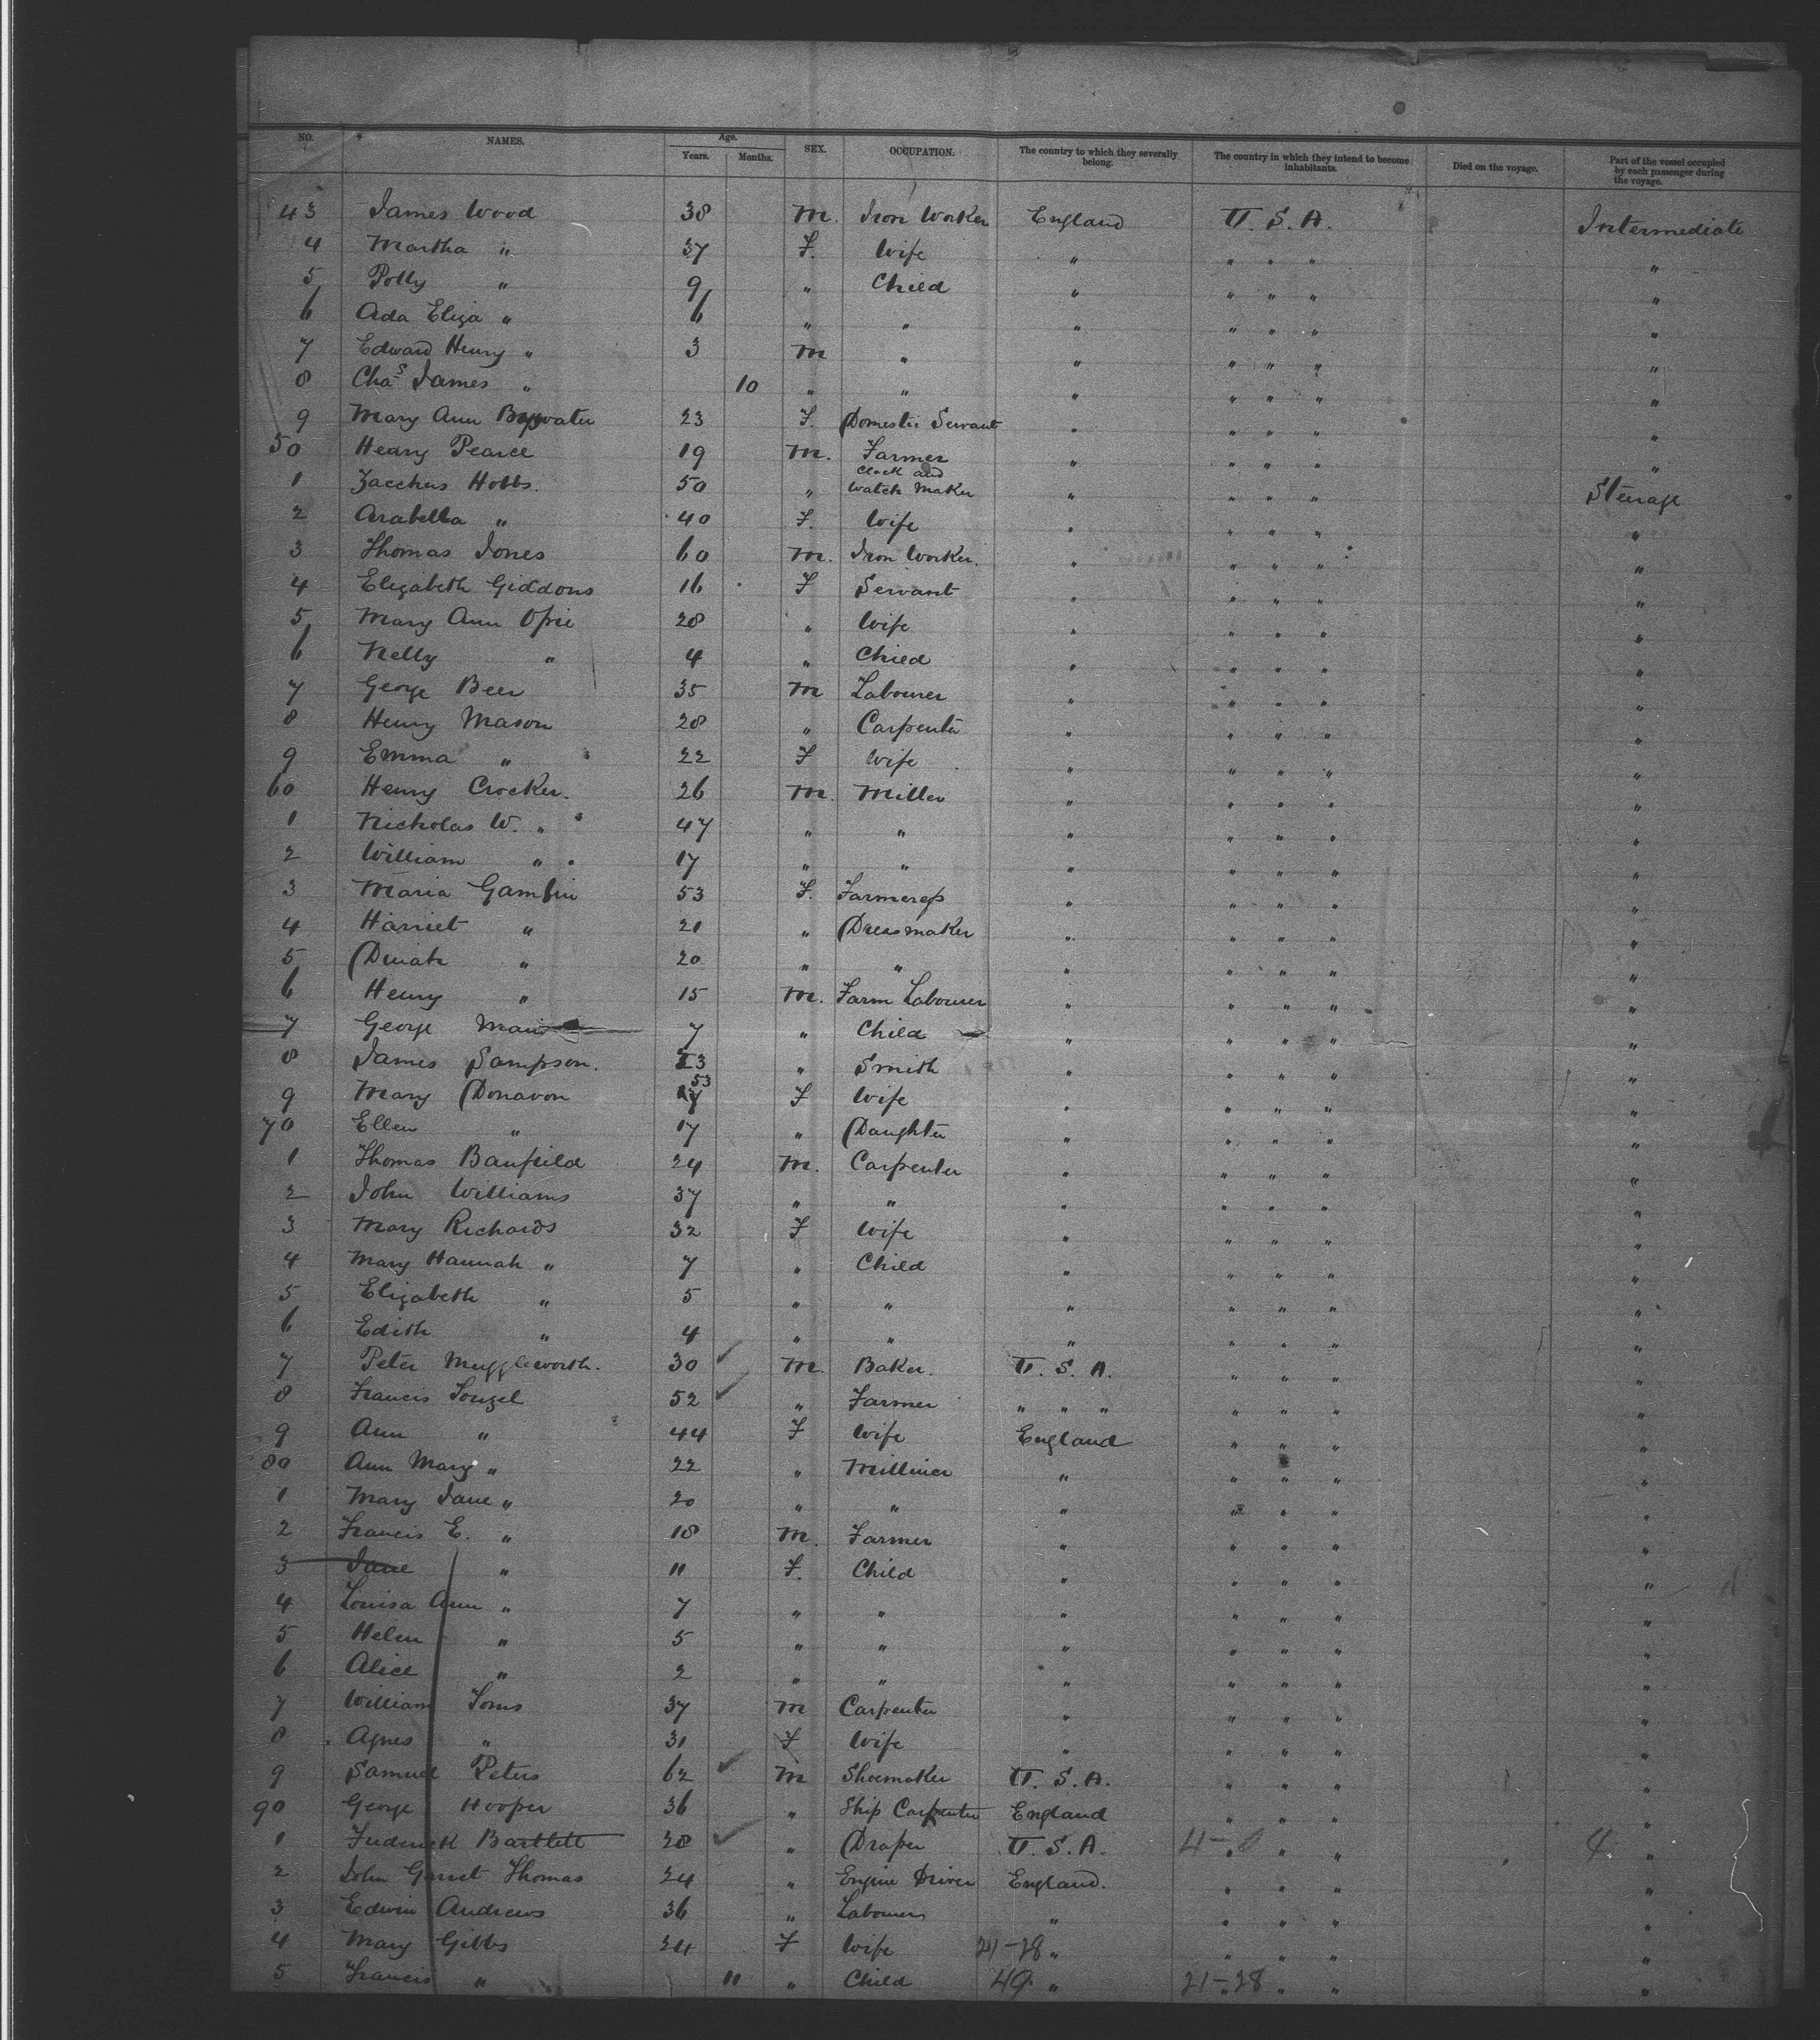 NO. NAMES. Age. Years. Months. SEX. OCCUPATION. The country to which they severally belong. The country in which they intend to become inhabitants. Died on the voyage. Part of the vessel occupied by each passenger during the voyage.
43 James Wood 38 M. Iron Worker England U. S. A. Intermediate
4 Martha " 37 F. Wife " " " " "
5 Polly " 9 " Child " " " " "
6 Ada Eliza " 6 " " " " " " "
7 Edward Henry " 3 M " " " " " "
8 Chas James " 10 " " " " " " "
9 Mary Ann Bywater 23 F. Domestic Servant " " " " "
50 Henry Pearce 19 M. Farmer " " " " "
1 Zacchus Hobbs. 50 " Clock and Watch Maker " " " " Steerage
2 Arabella " 40 F. Wife " " " " "
3 Thomas Jones 60 M. Iron Worker. " " " " "
4 Elizabeth Giddons 16 F Servant " " " " "
5 Mary Ann Opie 28 " Wife " " " " "
6 Nelly " 4 " Child " " " " "
7 George Beer 35 M Labourer " " " " "
8 Henry Mason 28 " Carpenter " " " " "
9 Emma " 22 F Wife " " " " "
60 Henry Crocker. 26 M. Miller " " " " "
1 Nicholas W. " 47 " " " " " " "
2 William " 17 " " " " " " "
3 Maria Gamblin 53 F. Farmeress " " " " "
4 Harriet " 21 " Dressmaker " " " " "
5 Dinah " 20 " " " " " " "
6 Henry " 15 M. Farm Labourer " " " " "
7 George 7 " Child " " " " "
8 James Sampson. " Smith " " " " "
9 Mary Donavon 53 F Wife " " " " "
70 Ellen " 17 " Daughter " " " " "
1 Thomas Banfield 24 M. Carpenter " " " " "
2 John Williams 37 " " " " " " "
3 Mary Richards 32 F Wife " " " " "
4 Mary Hannah " 7 " Child " " " " "
5 Elizabeth " 5 " " " " " " "
6 Edith " 4 " " " " " " "
7 Peter Muggleworth. 30 M. Baker. U. S. A. " " " "
8 Francis Tonzel 52 " Farmer " " " " " " "
9 Ann " 44 F Wife England " " " "
80 Ann Mary " 22 " Milliner " " " " "
1 Mary Jane " 20 " " " " " " "
2 Francis E. " 18 M. Farmer " " " " "
3 Jane " 11 F. Child " " " " "
4 Louisa Ann " 7 " " " " " " "
5 Helen " 5 " " " " " " "
6 Alice " 2 " " " " " " "
7 William Toms 37 M Carpenter " " " " "
8 Agnes " 31 F Wife " " " " "
9 Samuel Peters 62 M Shoemaker U. S. A. " " " "
90 George Hooper 36 " Ship Carpenter England " " " "
1 Frederick Bartlett 28 " Draper U. S. A. " " " 4 "
2 John Garret Thomas 24 " Engine Driver England. " " " "
3 Edwin Andrews 36 " Labourer " " " " "
4 Mary Gibbs 24 F Wife 21-28 " " " " "
5 Francis " 11 " Child 49 " 21-28 " " " "